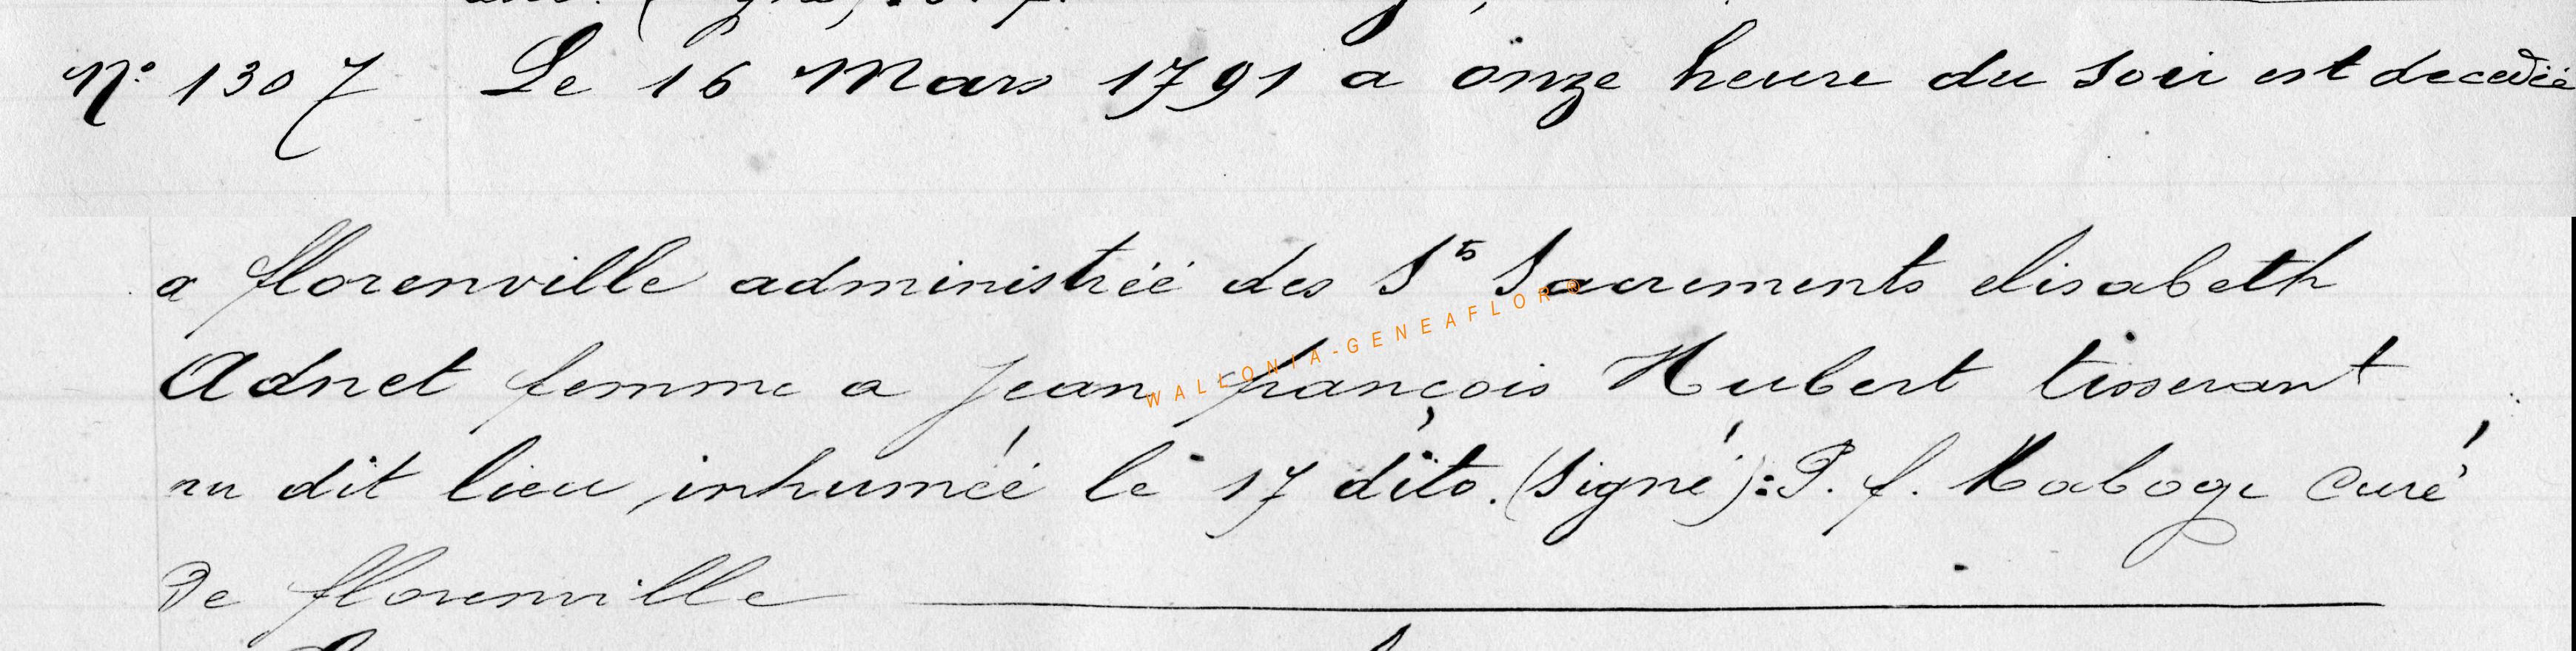 N° 1307 Le 16 Mars 1791 a onze heure du Soir est decedéé
a florenville administréé des S^ts Sacrements elisabeth
Adnet femme a Jean françois Hubert tisserant
au dit lieu, inhuméé le 17 dito. (Signé): P. f. Maboge Curé
De florenville
WALLONIA-GENEAFLOR®